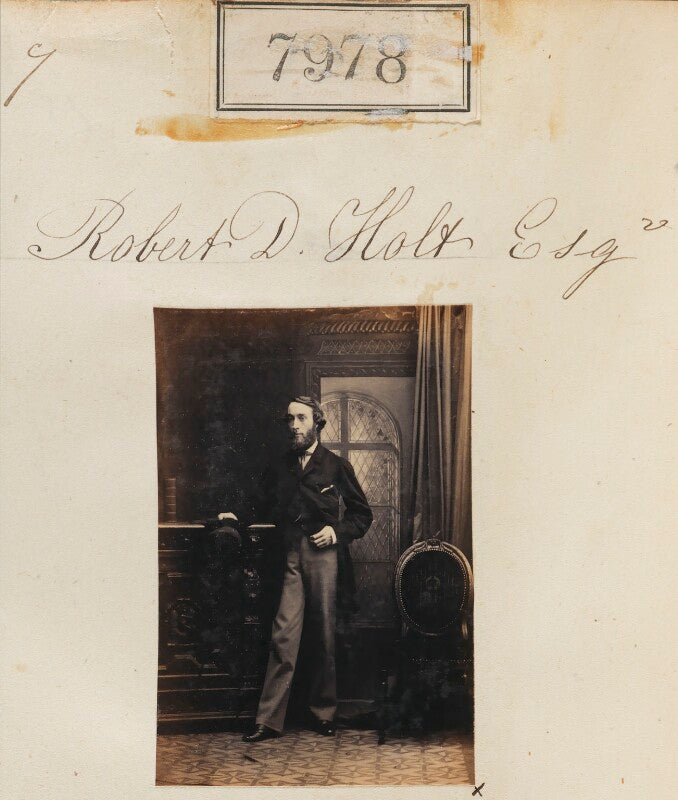 7978
9
Robert D. Holt Esqr
x